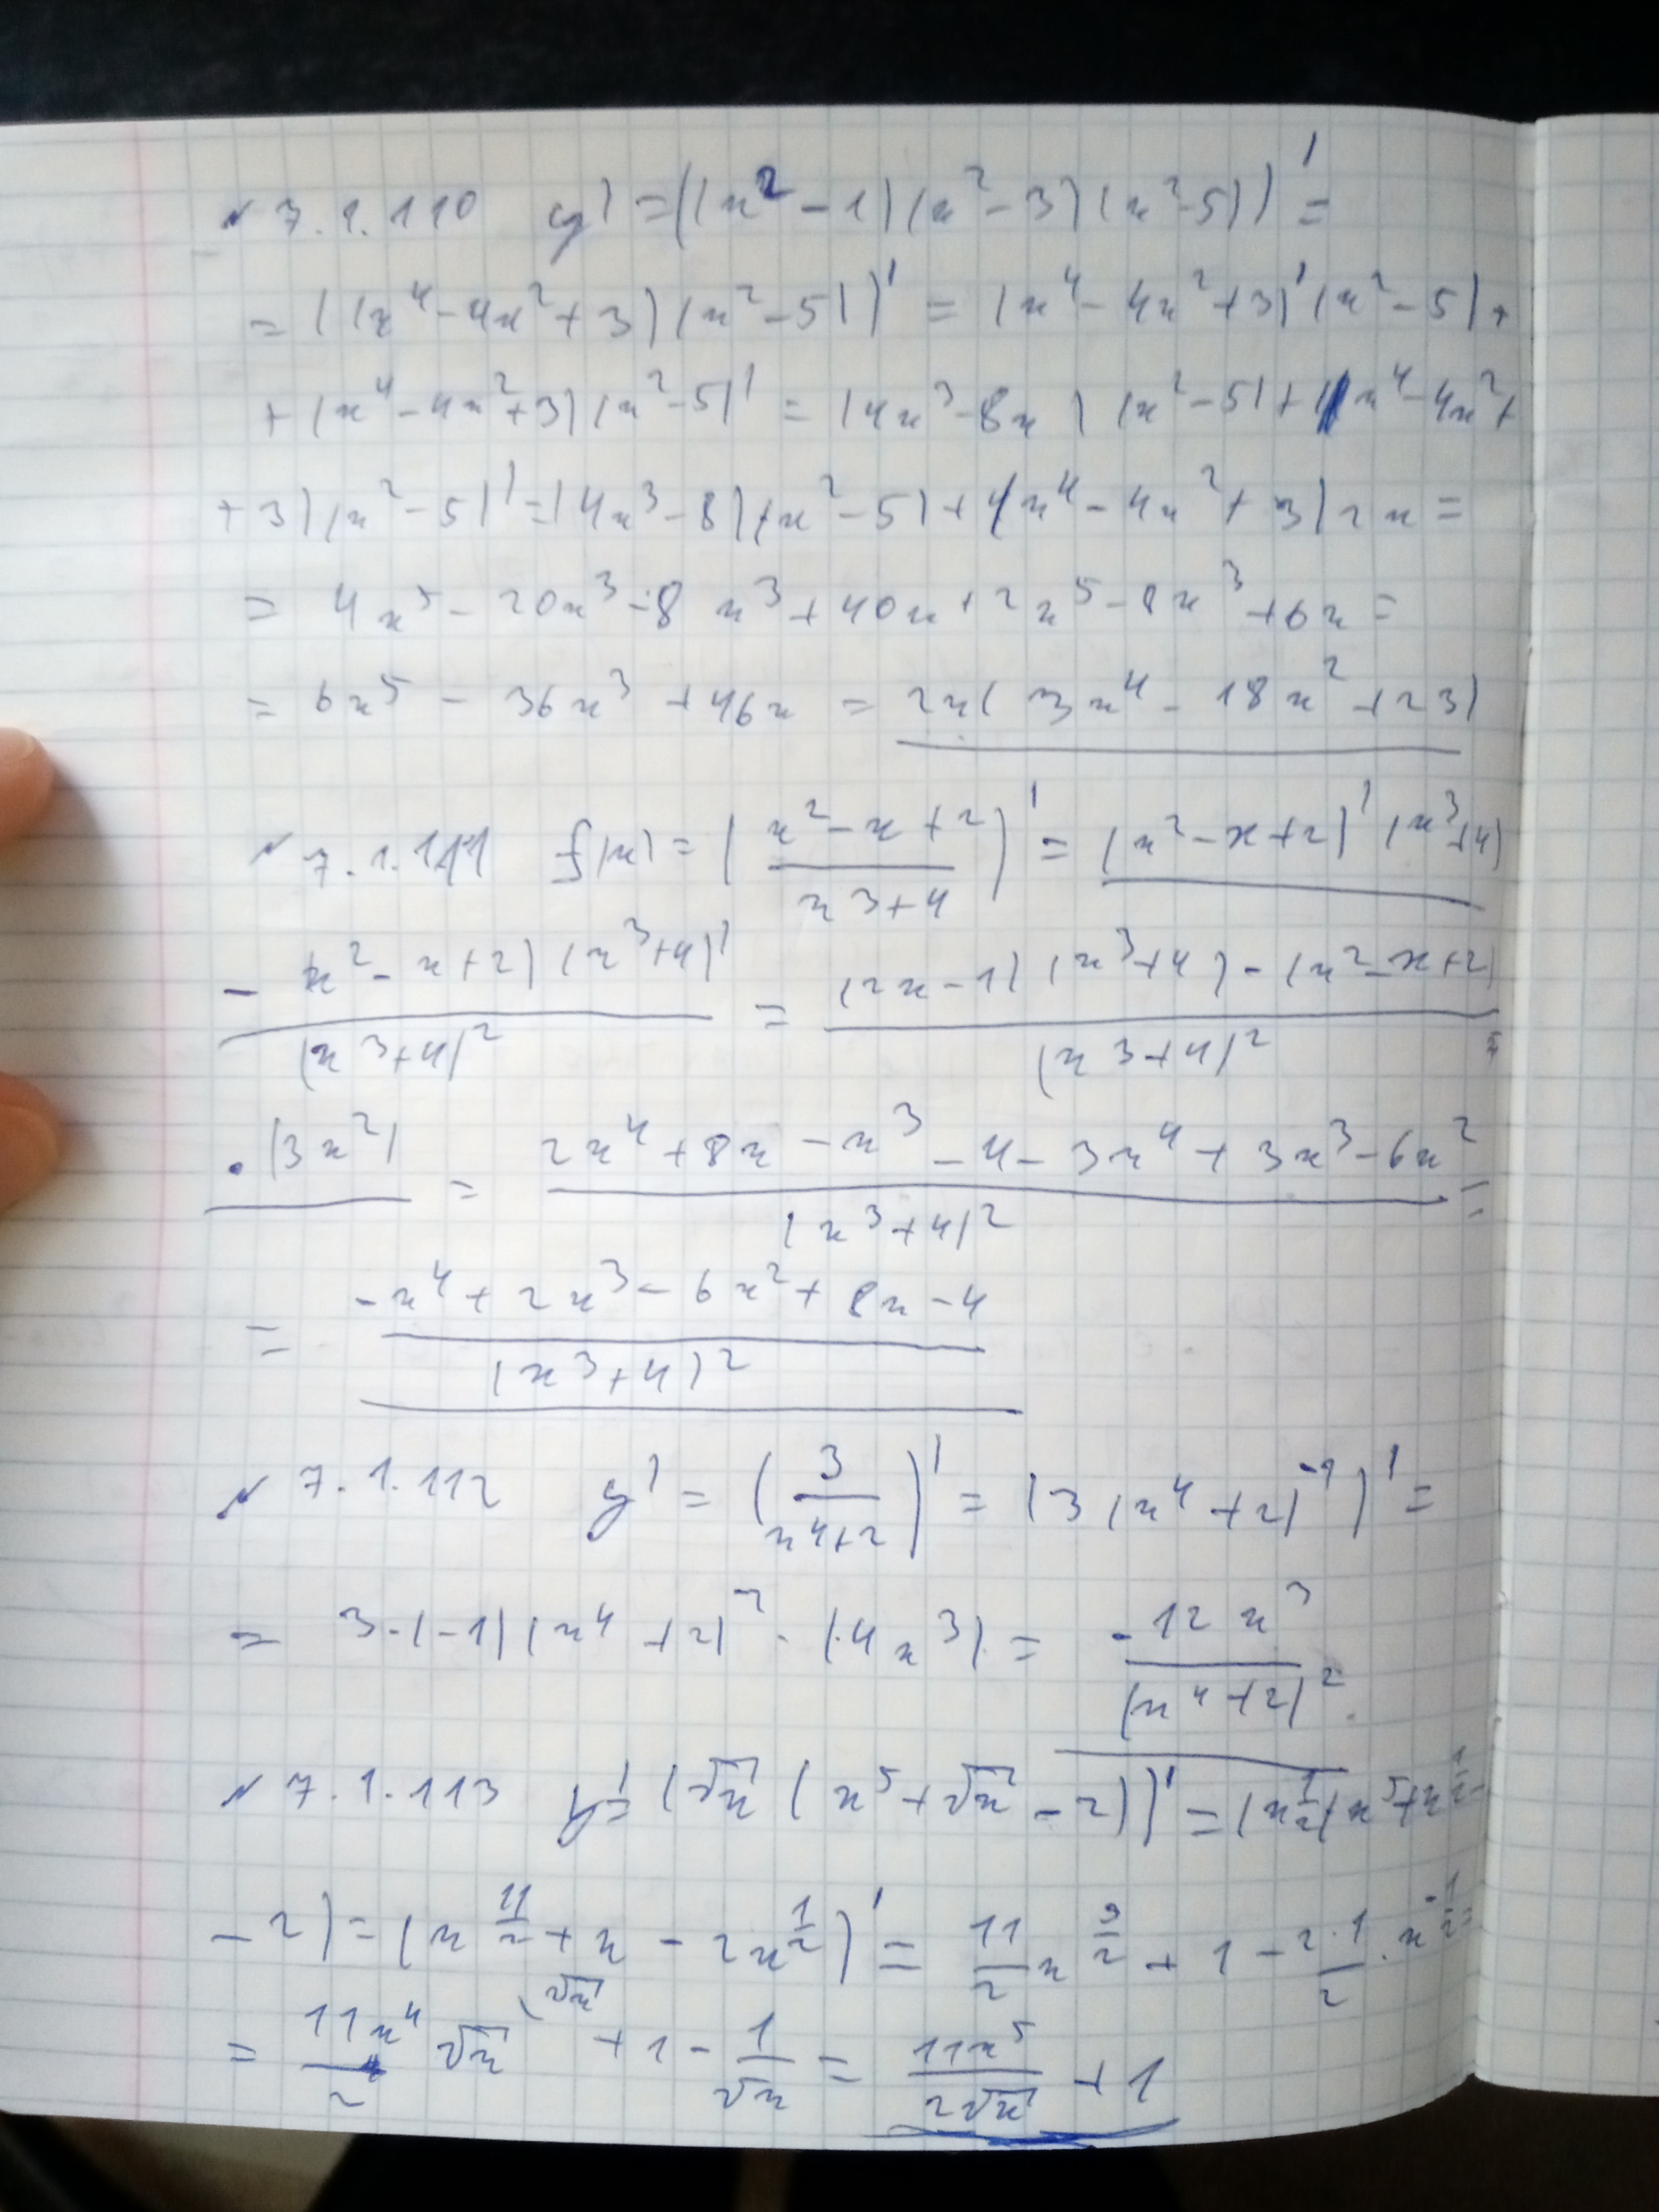 № 7.1.110 y' = ((x² - 1)(x² - 3)(x² - 5))' =
= ((x⁴ - 4x² + 3)(x² - 5))' = (x⁴ - 4x² + 3)'(x² - 5) +
+ (x⁴ - 4x² + 3)(x² - 5)' = (4x³ - 8x)(x² - 5) + (x⁴ - 4x² +
+ 3)(x² - 5)' = (4x³ - 8)(x² - 5) + (x⁴ - 4x² + 3)2x =
= 4x⁵ - 20x³ - 8x³ + 40x + 2x⁵ - 8x³ + 6x =
= 6x⁵ - 36x³ + 46x = 2x(3x⁴ - 18x² + 23)
№ 7.1.111 f(x) = ((x² - x + 2)/(x³ + 4))' = (x² - x + 2)'(x³ + 4)
- x² - x + 2)(x³ + 4)' / (x³ + 4)² = (2x - 1)(x³ + 4) - (x² - x + 2) / (x³ + 4)²
· (3x²) = (2x⁴ + 8x - x³ - 4 - 3x⁴ + 3x³ - 6x²)/(x³ + 4)² =
= (-x⁴ + 2x³ - 6x² + 8x - 4)/(x³ + 4)²
№ 7.1.112 y' = (3/(x⁴ + 2))' = (3(x⁴ + 2)⁻¹)' =
= 3·(-1)(x⁴ + 2)⁻² · (4x³) = -12x³/(x⁴ + 2)²
№ 7.1.113 y' = (√x (x⁵ + √x - 2))' = (x^(1/2)(x⁵ + x^(1/2) -
- 2) = (x^(11/2) + x - 2x^(1/2))' = 11/2 x^(9/2) + 1 - 2·1/2 · x^(-1/2) =
= 11x⁴/2 √x + 1 - 1/√x = 11x⁵/(2√x) + 1